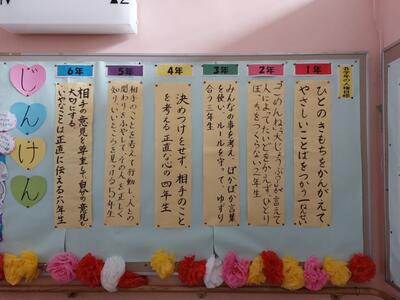 じんけん
各学年の人権目標
1年
ひとのきもちをかんがえて
やさしいことばをつかう一ねんせい
2年
「ごめんね」「大じょうぶ」が言えて
人によってたいどをかえず ひとり
ぼっちをつくらない二年生
3年
みんなの事を考え、ぽかぽか言葉
を使い、ルールを守って、ゆずり
合う三年生
4年
決めつけをせず、相手のこと
を考える正直な心の四年生
5年
相手のことを考えて行動し、人との
関わりをふやして、その人を正しく
知り、いいところを見つける5年生
6年
相手の意見を尊重して、自分の意見も
大切にする
いやなことは正直に伝える六年生